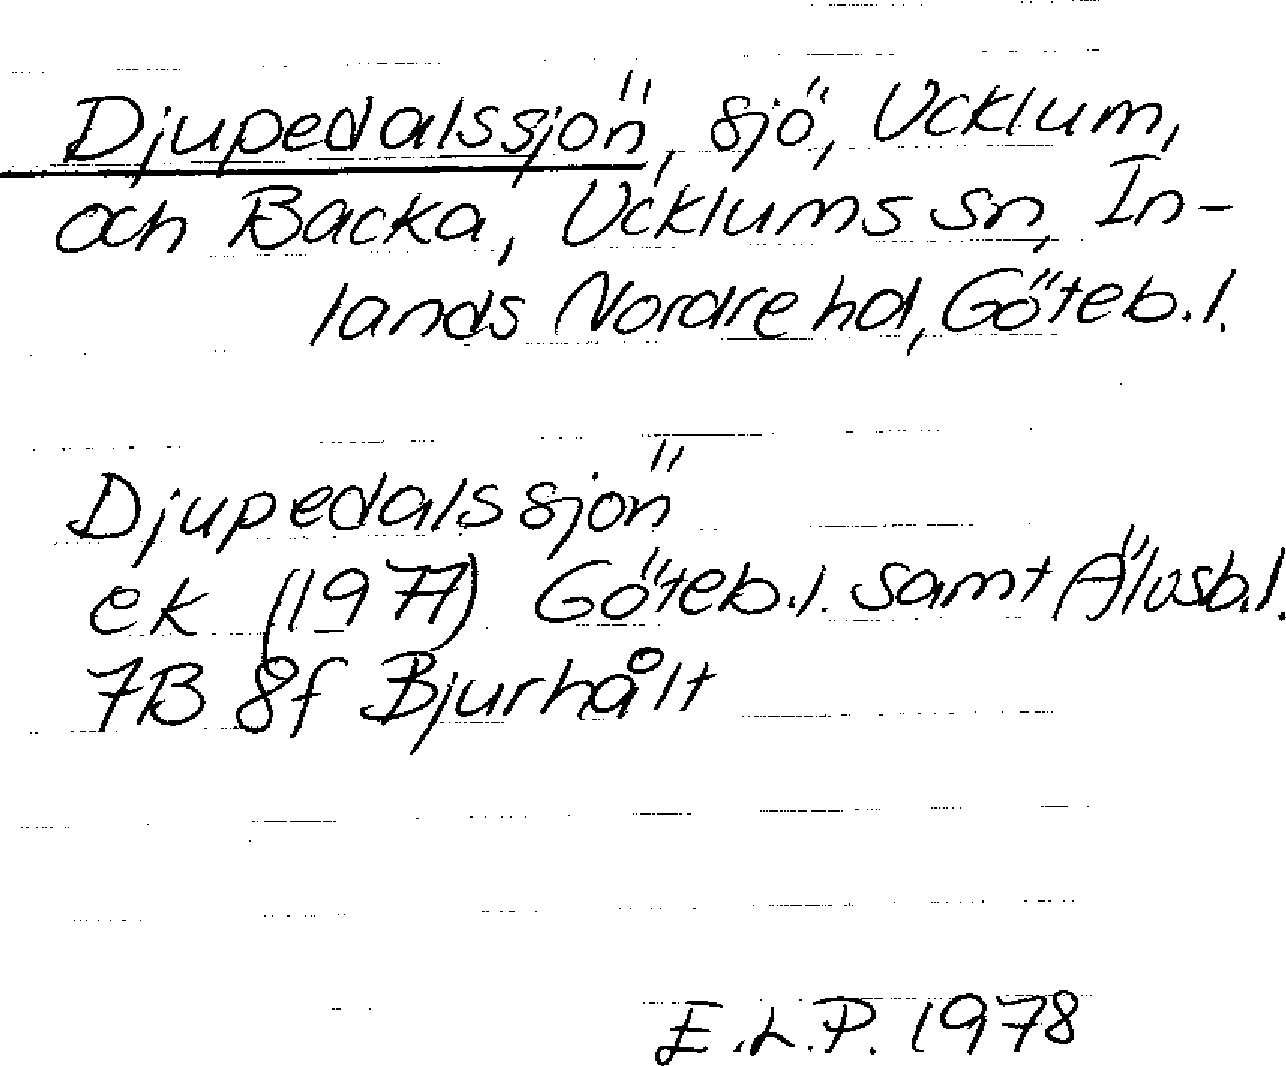 Djupedalssjön, sjö, Ucklum,
och Backa, Ucklums sn, In-
lands Nordre hd, Göteb.l.
Djupedalssjön
ek (1977) Göteb.l. samt Älvsb.l.
7B 8f Bjurhålt
E.L.P. 1978